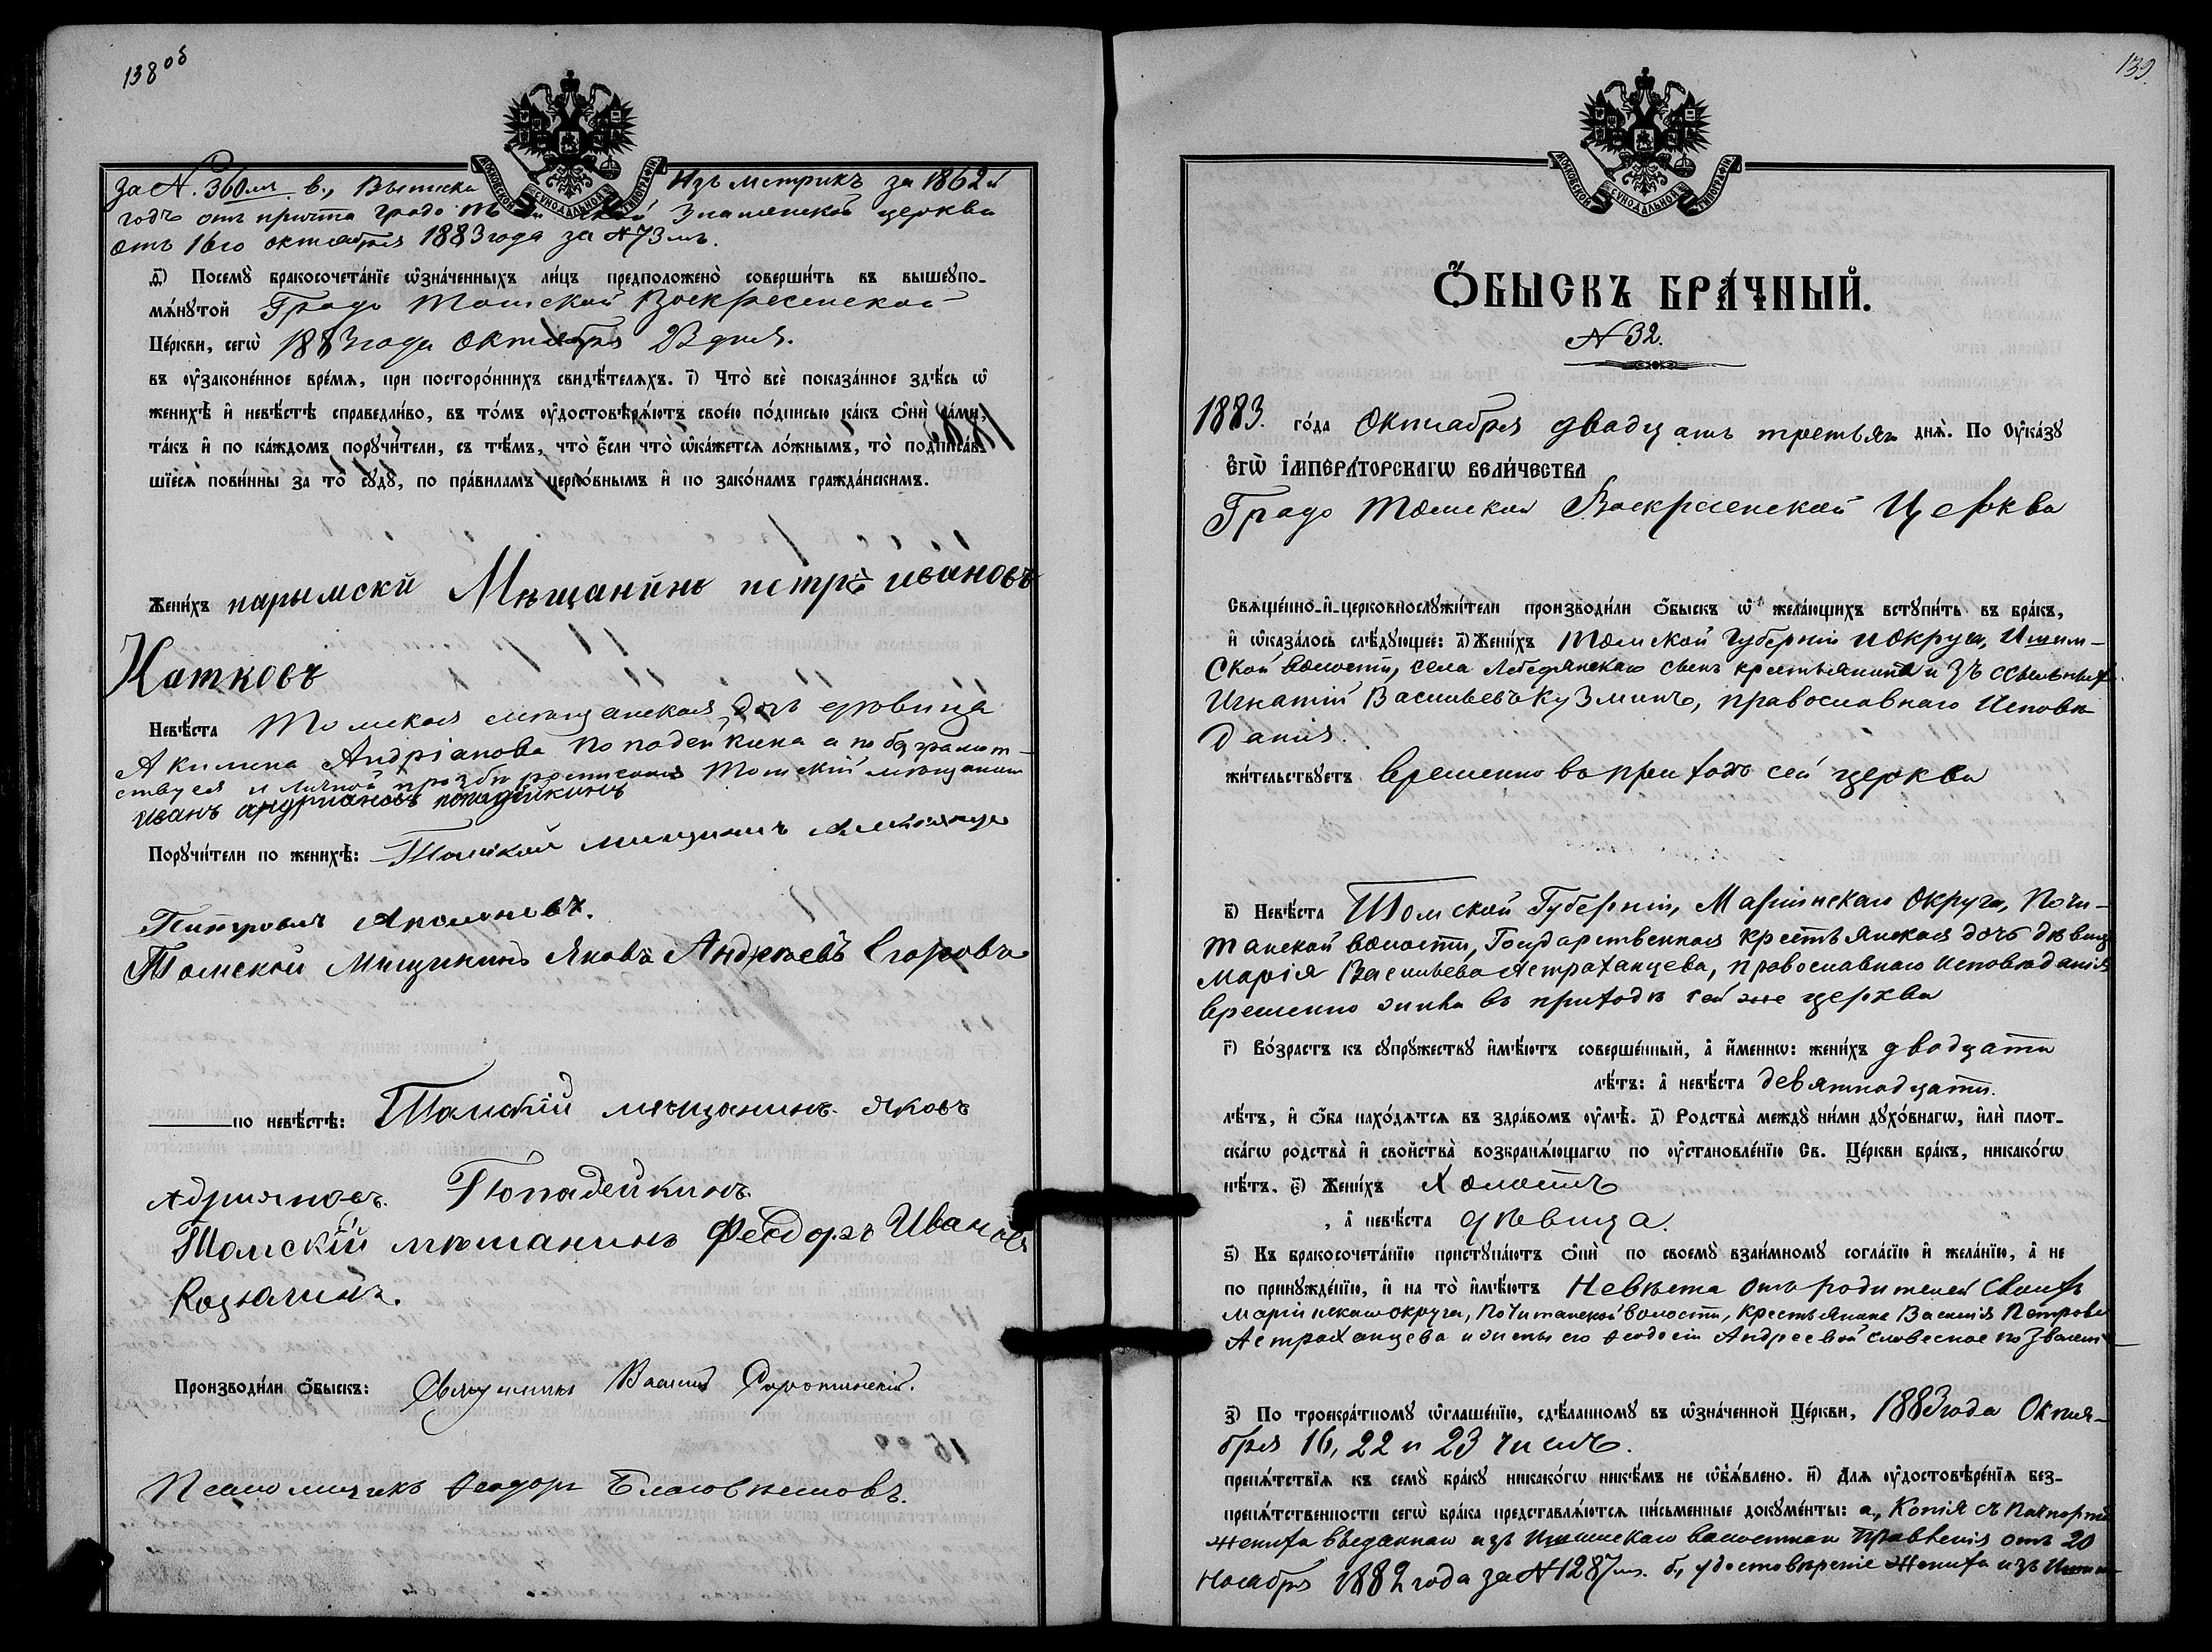 138 об
МОСКОВСКОЙ СѴНОДАЛЬНОЙ ТИПОГРАФІИ
за N. 360мъ в., Выписка изъ метрикъ за 1862й
годъ отъ причта градо Знаменской церкви
отъ 16го октября 1883 года за N 73мъ.
д҃) Посемꙋ̀ бракосочета́нїе ѡ҆зна́ченныхъ ли́цъ предположено̀ соверши́ть въ вышеꙋпо-
мѧ́нꙋтой Градо Томской Воскресенской
Це́ркви, сегѡ̀ 1883 года Октября 23 дня.
въ ᲂу҆законе́нное вре́мѧ, при посторо́ннихъ свидѣ́телѧхъ. і҃) Что̀ всѐ показа́нное здѣ́сь ѡ҆
женихѣ̀ и҆ невѣ́стѣ справедли́во, въ то́мъ ᲂу҆достовѣрѧ́ютъ свое́ю по́дписью ка́къ ѻ҆нѝ са́ми,
та́къ и҆ по ка́ждомъ порꙋчи́тели, съ тѣ́мъ, что̀ є҆́сли что̀ ѡ҆ка́жетсѧ ло́жнымъ, то̀ подписа́в-
шїесѧ пови́нны за то̀ сꙋдꙋ̀, по пра́виламъ церко́внымъ и҆ по зако́намъ гражда́нскимъ.
Жени́хъ нарымски Мѣщанинъ петръ ивановъ
Катковъ
Невѣ́ста Томская мѣщанская дочь дѣвица
Акилина Андріанова Попадейкина а по безграмот-
ству ея и личной прозьбѣ росписался Томскій мѣщанин
иванъ андриановъ попадейкинъ
Порꙋчи́тели по женихѣ̀: Томской мищининъ
Питровичъ
Томской Мищининъ Яковъ Андреевъ Егоровъ
по невѣ́стѣ: Томскій мѣщанинъ. Яковъ
Адрияновъ. Попадейкинъ.
Томскій мѣшанинъ Феодоръ Ивановъ
Производи́ли ѻ҆́быскъ: Священникъ Василій
Псаломщикъ Ѳеодоръ Благовѣщовъ.
139.
МОСКОВСКОЙ СѴНОДАЛЬНОЙ ТИПОГРАФІИ
Ѻ҆́БЫСКЪ БРА́ЧНЫЙ.
N 32.
1883. го́да Октября двадцать третьяго днѧ̀. По Оу҆ка́зꙋ
Є҆ГѠ̀ І҆МПЕРА́ТОРСКАГѠ ВЕЛИ́ЧЕСТВА
Градо Томской Воскресенской Церкви
Свѧще́нно-и҆-церковнослꙋжи́тели производи́ли ѻ҆́быскъ ѡ҆ жела́ющихъ встꙋпи́ть въ бра́къ,
и҆ ѡ҆каза́лось слѣ́дꙋющее: а҃) Жени́хъ Томской Губерніи и Округа, Ишим-
ской волости, села Лебедянскаго сынъ крестьянина изъ ссыльныхъ
Игнатій Васильевъ Кузминъ, православнаго Исповѣ-
данія.
жи́тельствꙋетъ временно въ приходѣ сей церкви
в҃) Невѣ́ста Томской Губерніи, Маріинскаго Округа, Почи-
танской волости, Государственная крестьянская дочь дѣвица
Марія Васильева Астраханцева, православнаго исповѣданія
временно жива въ приходѣ сей же церкви
г҃) Во́зрастъ къ сꙋпрꙋ́жествꙋ и҆мѣ́ютъ соверше́нный, а҆ и҆́меннѡ: жени́хъ двадцати
лѣ́тъ: а҆ невѣ́ста девятнадцати.
лѣ́тъ, и҆ ѻ҆́ба нахо́дѧтсѧ въ здра́вомъ ᲂу҆мѣ̀. д҃) Родства̀ междꙋ̀ ни́ми дꙋхо́внагѡ, и҆лѝ плот-
ска́гѡ родства̀ и҆ сво́йства возбранѧ́ющагѡ по ᲂу҆становле́нїю Св. Це́ркви бра́къ, никако́гѡ
нѣ́тъ. є҃) Жени́хъ Холостъ
, а҆ невѣ́ста дѣвица.
ѕ҃) Къ бракосочета́нїю пристꙋпа́ютъ ѻ҆нѝ по своемꙋ̀ взаи́мномꙋ согла́сїю и҆ жела́нїю, а҆ не
по принꙋжде́нїю, и҆ на то̀ и҆мѣ́ютъ Невѣста отъ родителей своихъ
Маріинскаго округа, Почитанской волости, Крестьянина Василія Петрова
Астраханцева и жены его Ѳеодосіи Андреевой словесное позволеніе
з҃) По троекра́тномꙋ ѡ҆глаше́нїю, сдѣ́ланномꙋ въ ѡ҆зна́ченной Це́ркви, 1883 года Октя-
бря 16, 22 и 23 чиселъ.
препѧ́тствїѧ къ семꙋ̀ бра́кꙋ никако́гѡ никѣ́мъ не ѡ҆б̾ѧ́влено. и҃) Длѧ ᲂу҆достовѣре́нїѧ без-
препѧ́тственности сегѡ̀ бра́ка представлѧ́ютсѧ пи́сьменные докꙋме́нты: а., Копія съ паспорта
жениха выданная изъ Ишимскаго волостнаго Правленія отъ 20
Ноября 1882 года за N 1287мъ. б., удостовѣреніе жениха изъ Ишим-